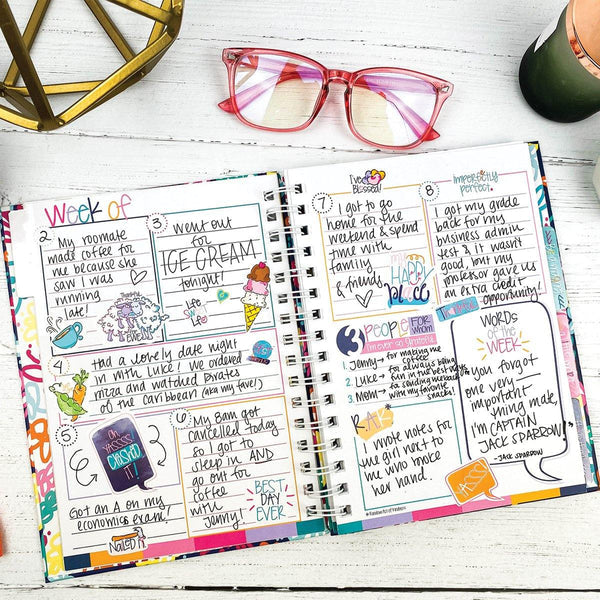 Week of
2
My roomate
made coffee for
me because she
saw I was
running
late!
3
Went out
for
ICE CREAM
tonight!
life
4
Had a lovely date night
in with Luke! We ordered
pizza and watched Pirates
of the Caribbean (aka my fave!)
5
Oh
YASSSS
CRUSHED
IT!
Got an A on my
economics exam!
NaiLed iT!
6
My 8am got
cancelled today
so I got to
sleep in AND
go out for
coffee
with
Jenny!
BEST
DAY
EVER
Tweet
Blessed!
7
I got to go
home for the
weekend & spend
time with
family
& friends
my
HAPPY
place
imperfectly
perfect.
8
I got my grade
back for my
business admin
test & it wasn't
good, but my
professor gave us
an extra credit
opportunity!
3 PEOPLE FOR whom
I'm ever so Grateful
1. Jenny → for making me
coffee!
2. Luke → for always being
him in the best ways
3. Mom → for sending me snacks
with my favorite
snacks!
RAK
I wrote notes for
the girl next to
me who broke
her hand.
YASSS!
WORDS
of the
WEEK
"You forgot
one very
important
thing mate,
I'm CAPTAIN
JACK SPARROW."
-JACK SPARROW